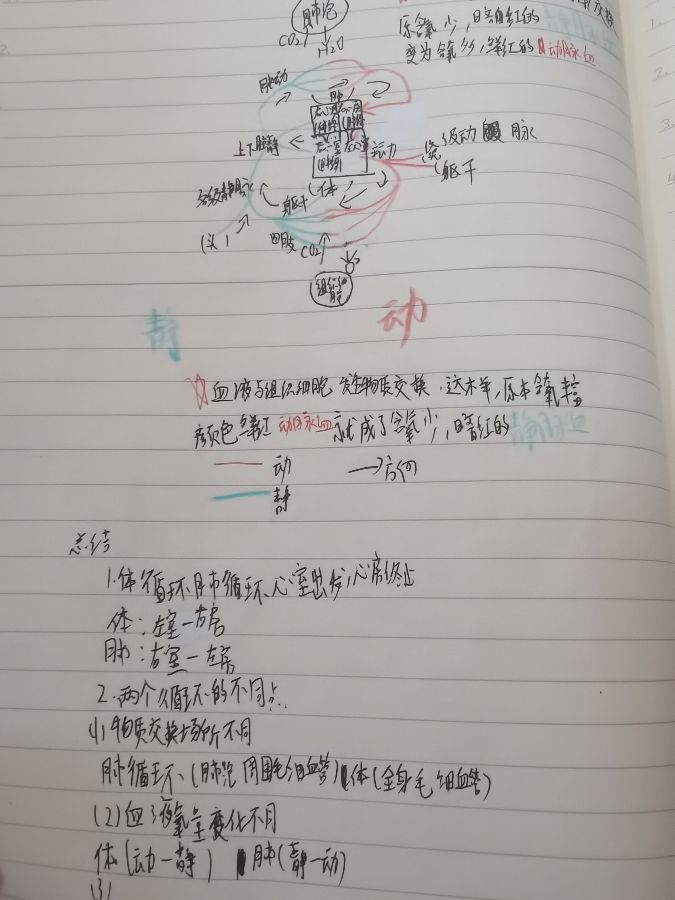 肺泡
CO2
H2O
含氧少,暗红的
变为含氧多,鲜红的动脉血
肺动
肺
上下腔静
主动
各级动脉
躯干
各级静脉
体
躯干
(头)
四肢
CO2
O2
组织细胞
静
动
血液与组织细胞发生物质交换.这样,原本含氧丰富
颜色鲜红动脉血就成了含氧少,暗红的静脉血
动 →方向
静
总结
1.体循环肺循环心室出发,心房终止
体:左室—右房
肺:右室—左房
2.两个循环的不同点
(1)物质交换场所不同
肺循环(肺泡周围毛细血管)体(全身毛细血管)
(2)血液氧量变化不同
体(动—静) 肺(静—动)
(3)